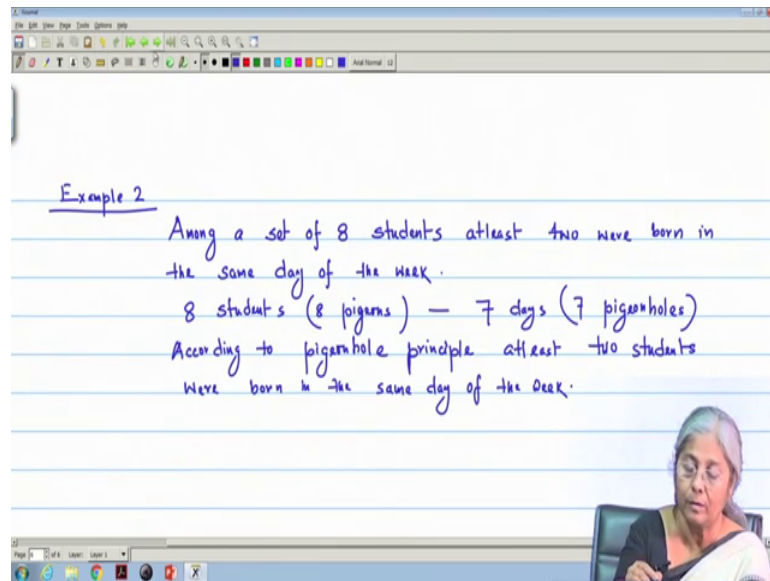 Journal
File Edit View Page Tools Options Help
T
Arial Normal 12
Example 2
Among a set of 8 students atleast two were born in
the same day of the week.
8 students (8 pigeons) — 7 days (7 pigeonholes)
According to pigeonhole principle atleast two students
were born in the same day of the week.
Page of 8 Layer: Layer 1